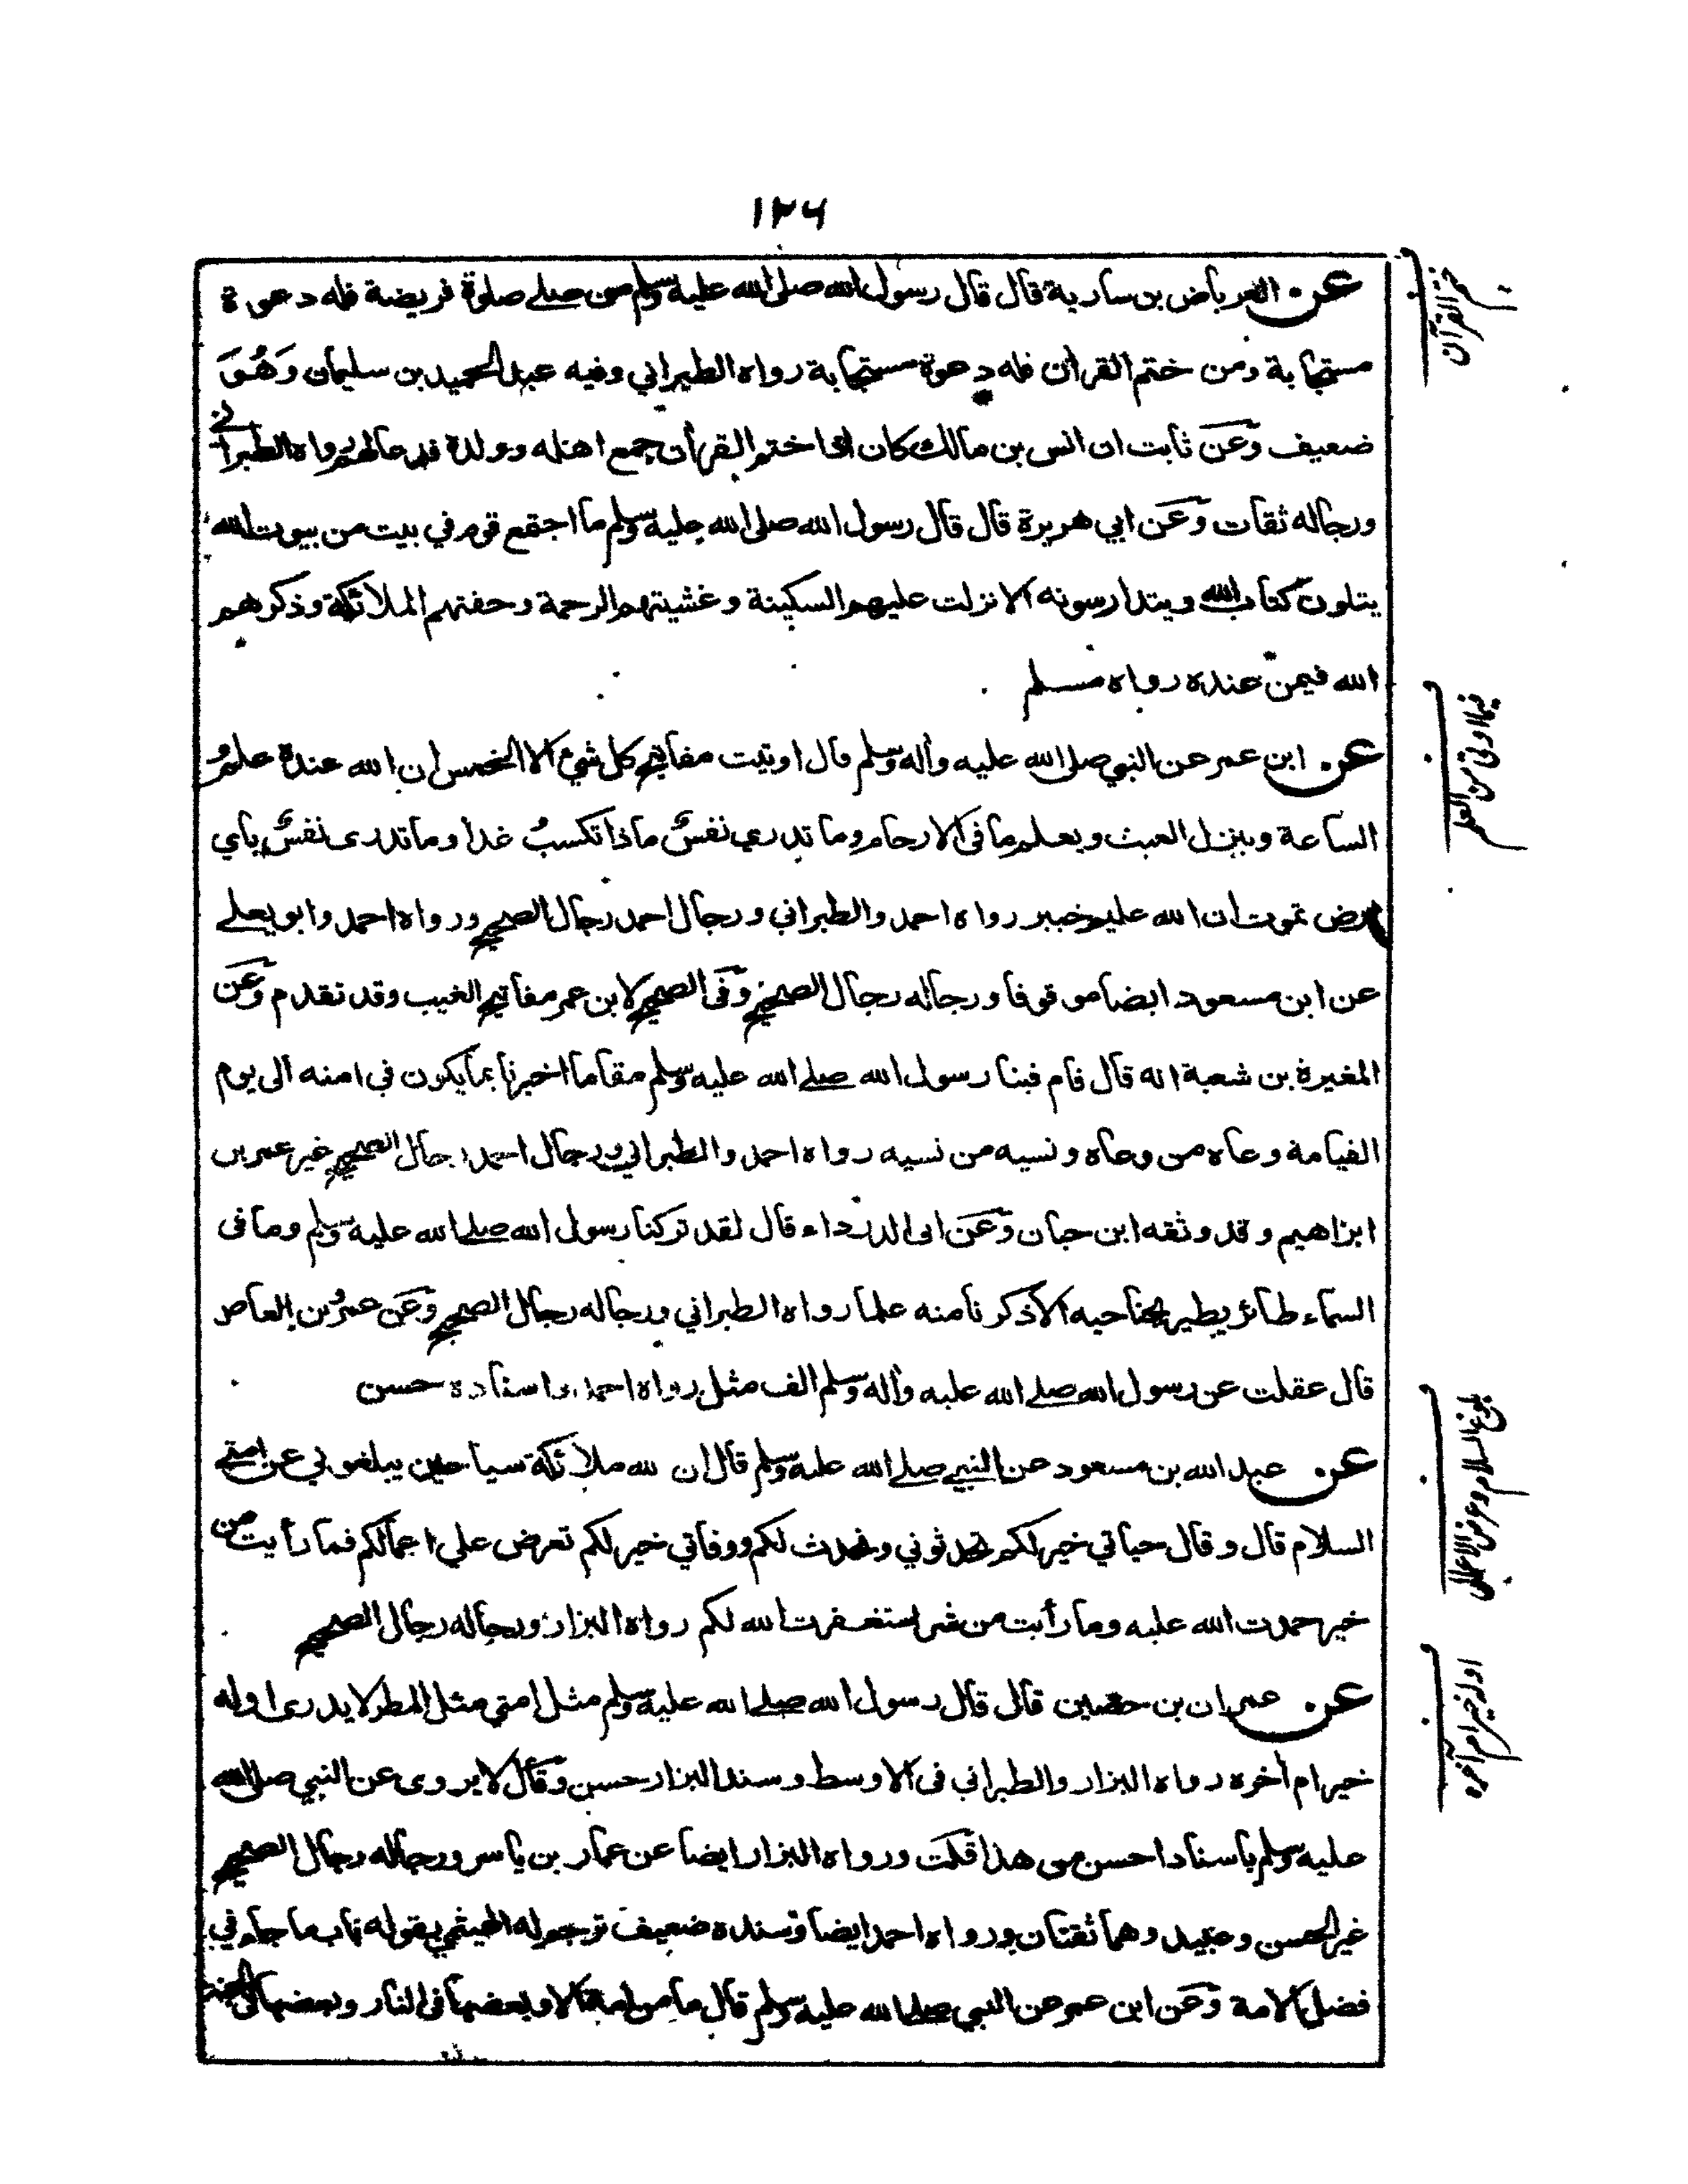 ١٢٦
عن العرباض بن سارية قال قال رسول الله صلى الله عليه وسلم من صلے صلوة فريضة فله دعوة
مستجابة ومن ختم القرآن فله دعوة مستجابة رواه الطبراني وفيه عبد الحميد بن سليمان وَهُوَ
ضعيف وَعَن ثابت ان انس بن مالك كان اذا ختم القرأن جمع اهله وولدة فدعا لهم رواه الطبراني
ورجاله ثقات وَعَن ابي هريرة قال قال رسول الله صلى الله عليه وسلم ما اجتمع قوم في بيت من بيوت الله
يتلون كتاب الله ويتدارسونه الا نزلت عليهم السكينة وغشيتهم الرحمة وحفتهم الملائكة وذكرهم
الله فيمن عنده رواه مسلم
عن ابن عمر عن النبي صلى الله عليه وأله وسلم قال اوتيت مفاتيح كل شيء الا الخمس ان الله عندة علمُ
الساعة وينزل الغيث ويعلم ما فى الارحام وما تدري نفسٌ ماذا تكسبُ غدا وما تدرى نفسٌ باي
ارض تموت ان الله عليم خبير رواه احمد والطبراني ورجال احمد رجال الصحيح ورواه احمد وابو يعلے
عن ابن مسعود ايضا موقوفا ورجاله رجال الصحيح وَفى الصحيح لابن عمر مفاتيح الغيب وقد تقدم وَعَن
المغيرة بن شعبة انه قال قام فينا رسول الله صلے الله عليه وسلم مقاما اخبرنا بما يكون في امته الى يوم
القيامة وعاه من وعاه ونسيه من نسيه رواه احمد والطبراني ورجال احمد رجال الصحيح غير عمر بن
ابراهيم وقد وثقه ابن حبان وَعَن ابى الدرداء قال لقد تركنا رسول الله صلے الله عليه وسلم وما فى
السماء طائر يطير بجناحيه الا ذكر نا منه علما رواه الطبراني ورجاله رجال الصحيح وَعَن عمرو بن العاص
قال عقلت عن رسول الله صلے الله عليه وأله وسلم الف مثل رواه احمد واسناده حسن
عن عبد الله بن مسعود عن النبي صلے الله عليه وسلم قال ان لله ملائكة سياحين يبلغوني عن امتي
السلام قال وقال حياتي خير لكم تحدثوني ونحدث لكم ووفاتي خير لكم تعرض علي اعمالكم فما رأيت من
خير حمدت الله عليه وما رأيت من شر استغفرت الله لكم رواه البزار ورجاله رجال الصحيح
عن عمران بن حصين قال قال رسول الله صلے الله عليه وسلم مثل امتي مثل المطر لا يدرى اوله
خير ام أخره رواه البزار والطبراني فى الاوسط وسند البزار حسن وقال لا يروى عن النبي صلى الله
عليه وسلم باسناد احسن من هذا قلت ورواه البزار ايضا عن عمار بن ياسر ورجاله رجال الصحيح
غير الحسن وعبيد وهما ثقتان ورواه احمد ايضا وسنده ضعيف ترجم له الهيثمي بقوله باب ما جاء في
فضل الامة وَعَن ابن عمر عن النبي صلى الله عليه وسلم قال ما من امة الا وبعضها فى النار وبعضها فى الجنة
ختم القرآن
فيما اوتى من العلم
بلوغ السلام وعرض الاعمال
اوله خير ام آخره